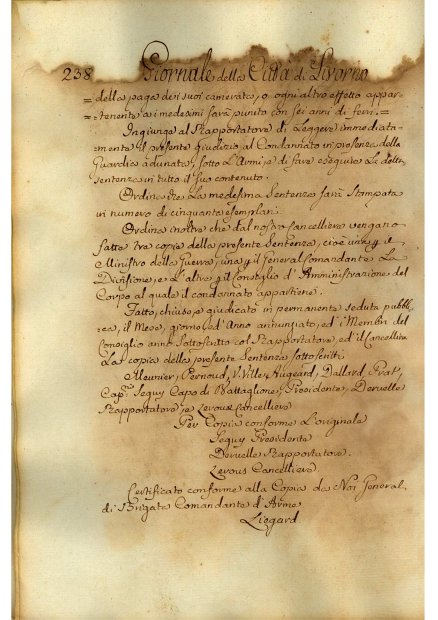 238 Giornale della Città di Livorno
= della paga dei suoi camerata, o ogni altro effetto appar=
= tenente ai medesimi sarà punito con sei anni di ferri.
Ingiunge al Rapportatore di Leggere immediata-
mente il presente giudizio al Condannato in presenza della
Guardia adunata, sotto L'Armi, e di fare eseguire La detta
sentenza in tutto il suo contenuto.
Ordina che La medesima Sentenza sarà Stampata
in numero di cinquanta esemplari.
Ordina inoltre che dal nostro Cancelliere vengano
fatte tre copie della presente Sentenza, cioè una p il
Ministro della Guerra, una p il General Comandante La
Divisione, e L'altra p il Consiglio d'Amministrazione del
Corpo al quale il condannato appartiene.
Fatto, chiuso, e giudicato in permanente seduta pubbli-
ca, il Mese, giorno, ed Anno annunziato, ed i Membri del
Consiglio anno Sottoscritto col Rapportatore, ed il Cancelliere
La copia della presente Sentenza sottoscritti
Meunier, Pernoud, V. Ville, Hugeard, Dallard, Prat,
Cap. Seguy Capo di Battaglione, Presidente, Deruelle
Rapportatore, e Lerous Cancelliere
Per Copia conforme L'originale
Seguy Presidente
Deruelle Rapportatore.
Lerous Cancelliere
Certificato conforme alla Copia da Noi General.
di Brigata Comandante d'Arme
Liegard